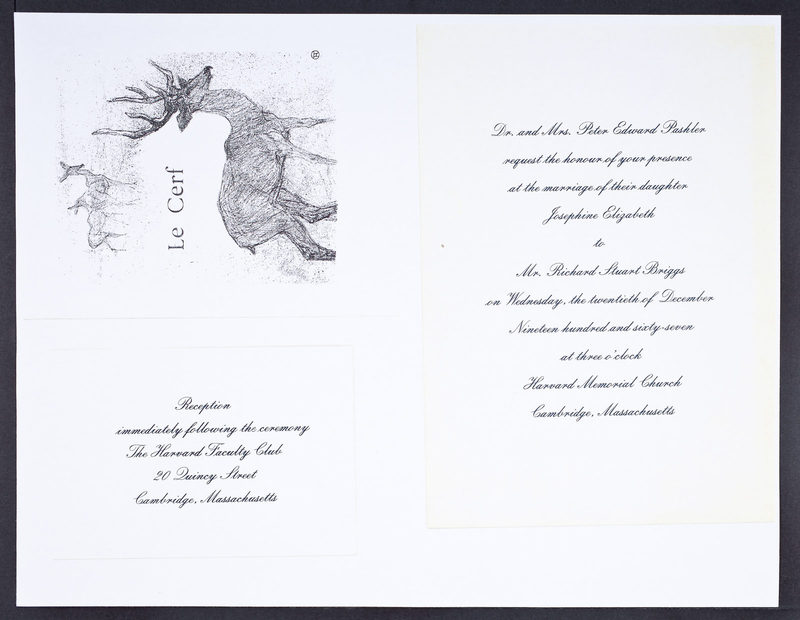 Le Cerf
Dr. and Mrs. Peter Edward Pashler
request the honour of your presence
at the marriage of their daughter
Josephine Elizabeth
to
Mr. Richard Stuart Briggs
on Wednesday, the twentieth of December
Nineteen hundred and sixty-seven
at three o'clock
Harvard Memorial Church
Cambridge, Massachusetts
Reception
immediately following the ceremony
The Harvard Faculty Club
20 Quincy Street
Cambridge, Massachusetts